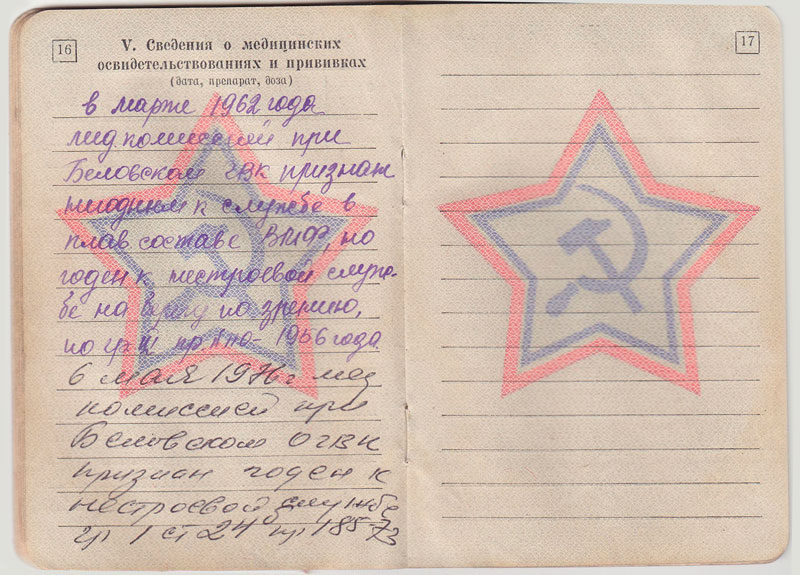 16
V. Сведения о медицинских
освидетельствованиях и прививках
(дата, препарат, доза)
в марте 1962 года
мед. комиссией при
Беловском ГВК признан
негодным к службе в
плав. составе ВМФ, но
годен к нестроевой служ-
бе на берегу по зрению,
по гр. III пр. 1956 года
6 мая 1976 г мед
комиссией при
Беловском ОГВК
признан годен к
нестроевой службе
гр 1 ст 24 пр 185-73
17